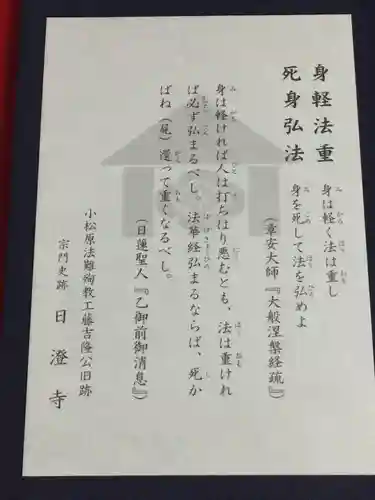 身軽法重
死身弘法
身は軽く法は重し
身を死して法を弘めよ
(章安大師『大般涅槃経疏』)
身は軽ければ人は打ちはり悪むとも、法は重けれ
ば必ず弘まるべし。法華経弘まるならば、死か
ばね(屍)還って重くなるべし。
(日蓮聖人『乙御前御消息』)
小松原法難殉教工藤吉隆公旧跡
宗門史跡 日澄寺